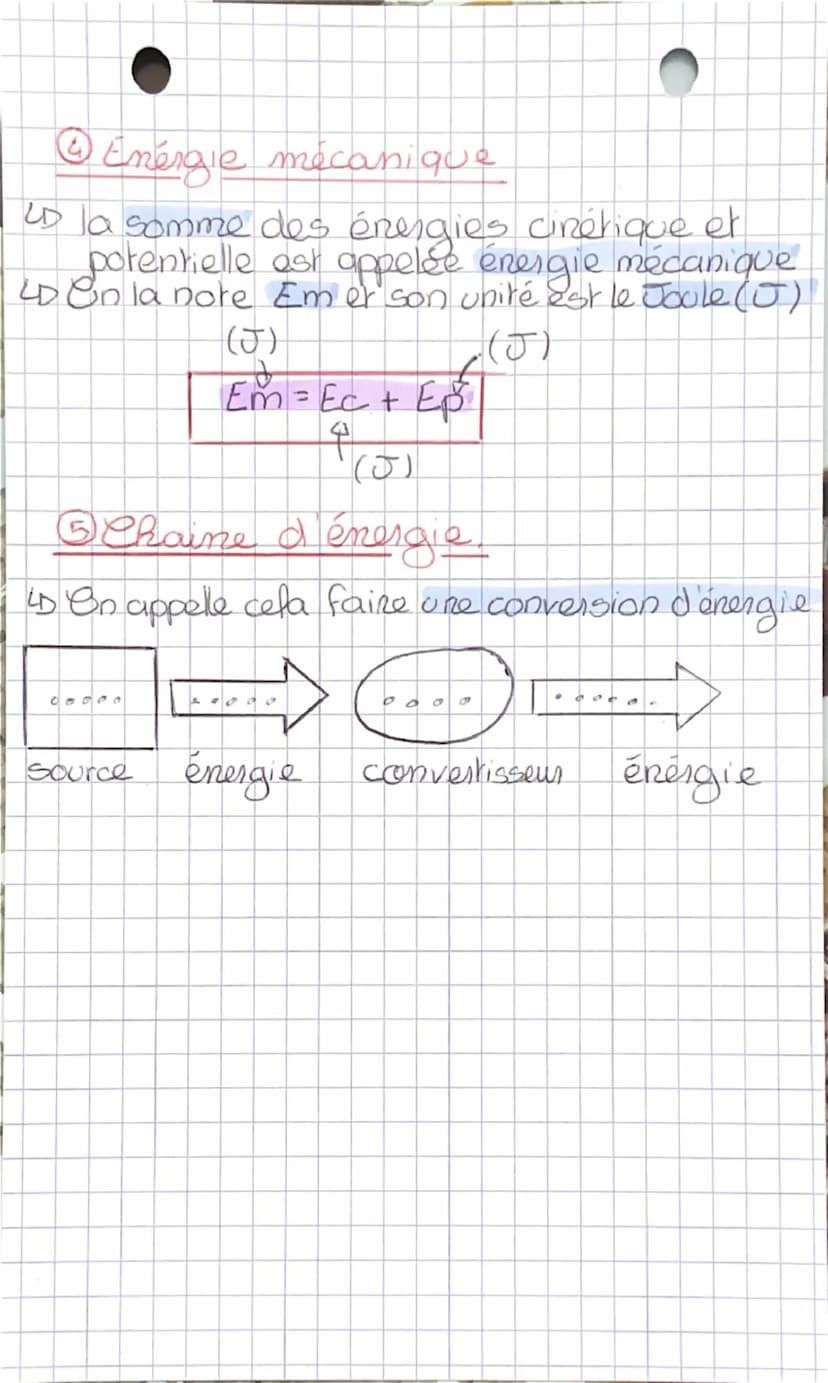 ④ Enérgie mécanique
↳ la somme des énergies cinétique et
potentielle est appelée énergie mécanique
↳ On la note Em et son unité est le Joule (J)
(J) (J)
Em = Ec + Ep
(J)
⑤ Chaine d'énergie.
↳ On appelle cela faire une conversion d'énergie
..... ..... .... ......
source énergie convertisseur énérgie